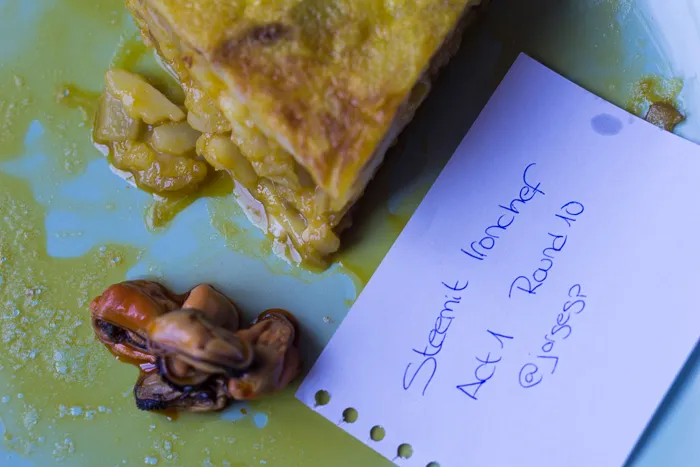 Steemit Ironchef
Act 1 Round 10
@jorgesp